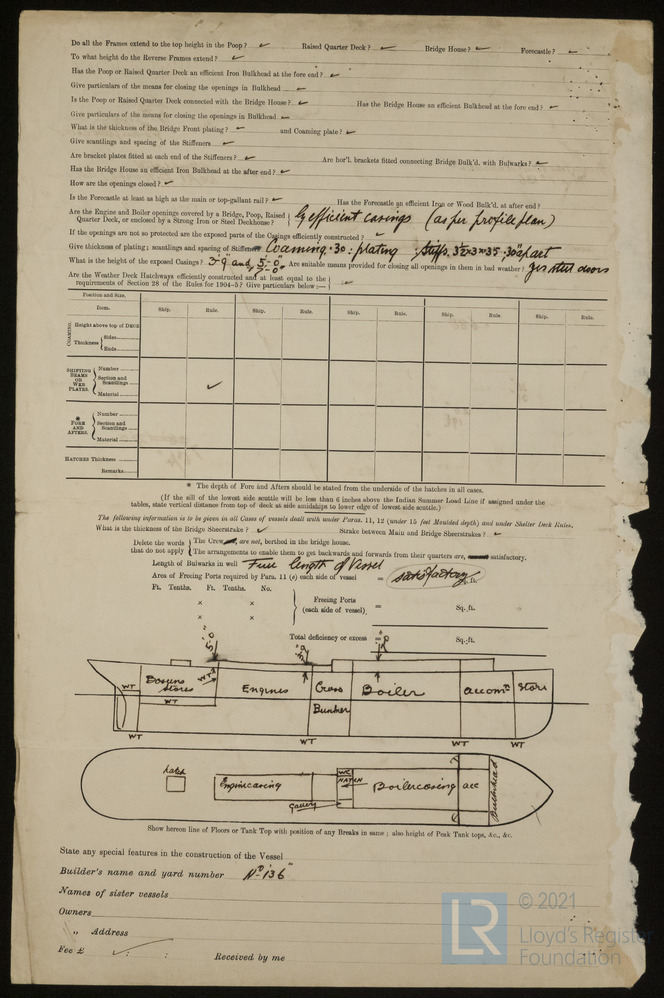 Do all the Frames extend to the top height in the Poop? ✓ Raised Quarter Deck? ✓ Bridge House? ✓ Forecastle? ✓
To what height do the Reverse Frames extend? ✓
Has the Poop or Raised Quarter Deck an efficient Iron Bulkhead at the fore end? ✓
Give particulars of the means for closing the openings in Bulkhead ✓
Is the Poop or Raised Quarter Deck connected with the Bridge House? ✓ Has the Bridge House an efficient Bulkhead at the fore end? ✓
Give particulars of the means for closing the openings in Bulkhead ✓
What is the thickness of the Bridge Front plating? ✓ and Coaming plate? ✓
Give scantlings and spacing of the Stiffeners ✓
Are bracket plates fitted at each end of the Stiffeners? ✓ Are hor'l. brackets fitted connecting Bridge Bulk'd. with Bulwarks? ✓
Has the Bridge House an efficient Iron Bulkhead at the after end? ✓
How are the openings closed? ✓
Is the Forecastle at least as high as the main or top-gallant rail? ✓ Has the Forecastle an efficient Iron or Wood Bulk'd. at after end?
Are the Engine and Boiler openings covered by a Bridge, Poop, Raised Quarter Deck, or enclosed by a Strong Iron or Steel Deckhouse? } By efficient casings (as per profile plan)
If the openings are not so protected are the exposed parts of the Casings efficiently constructed? ✓
Give thickness of plating; scantlings and spacing of Stiffeners Coaming .30 : plating : Stiffs. 3½ x 3 x .35 .30" apart
What is the height of the exposed Casings? 3'-9" and 5'-0" 7'-0" Are suitable means provided for closing all openings in them in bad weather? Yes steel doors
Are the Weather Deck Hatchways efficiently constructed and at least equal to the requirements of Section 28 of the Rules for 1904-5? Give particulars below:— } ✓
Position and Size.
Item. Ship. Rule. Ship. Rule. Ship. Rule. Ship. Rule. Ship. Rule.
COAMING Height above top of DECK
Thickness { Sides
Ends
SHIFTING BEAMS OR WEB PLATES. { Number
Section and Scantlings ✓
Material
* FORE AND AFTERS. { Number
Section and Scantlings
Material
HATCHES Thickness
Remarks
* The depth of Fore and Afters should be stated from the underside of the hatches in all cases.
(If the sill of the lowest side scuttle will be less than 6 inches above the Indian Summer Load Line if assigned under the
tables, state vertical distance from top of deck at side amidships to lower edge of lowest side scuttle.)
The following information is to be given in all Cases of vessels dealt with under Paras. 11, 12 (under 15 feet Moulded depth) and under Shelter Deck Rules.
What is the thickness of the Bridge Sheerstrake? ✓ Strake between Main and Bridge Sheerstrakes? ✓
Delete the words that do not apply { The Crew are, are not, berthed in the bridge house.
The arrangements to enable them to get backwards and forwards from their quarters are, satisfactory.
Length of Bulwarks in well Full length of Vessel
Area of Freeing Ports required by Para. 11 (e) each side of vessel = satisfactory Sq. ft.
Ft. Tenths. Ft. Tenths. No.
× ×
× ×
Freeing Ports (each side of vessel). = Sq. ft.
Total deficiency or excess = Sq. ft.
5'-0" 3'-9"
Bosuns Stores WT Engines Cross Bunker Boiler accomn Store
WT WT WT WT WT WT
hatch Engine casing Galley WC HATCH Boiler casing acc Bulkhead
Show hereon line of Floors or Tank Top with position of any Breaks in same; also height of Peak Tank tops, &c., &c.
State any special features in the construction of the Vessel
Builder's name and yard number No 136"
Names of sister vessels
Owners
" Address
Fee £ ✓ : : Received by me
LR © 2021
Lloyd's Register
Foundation